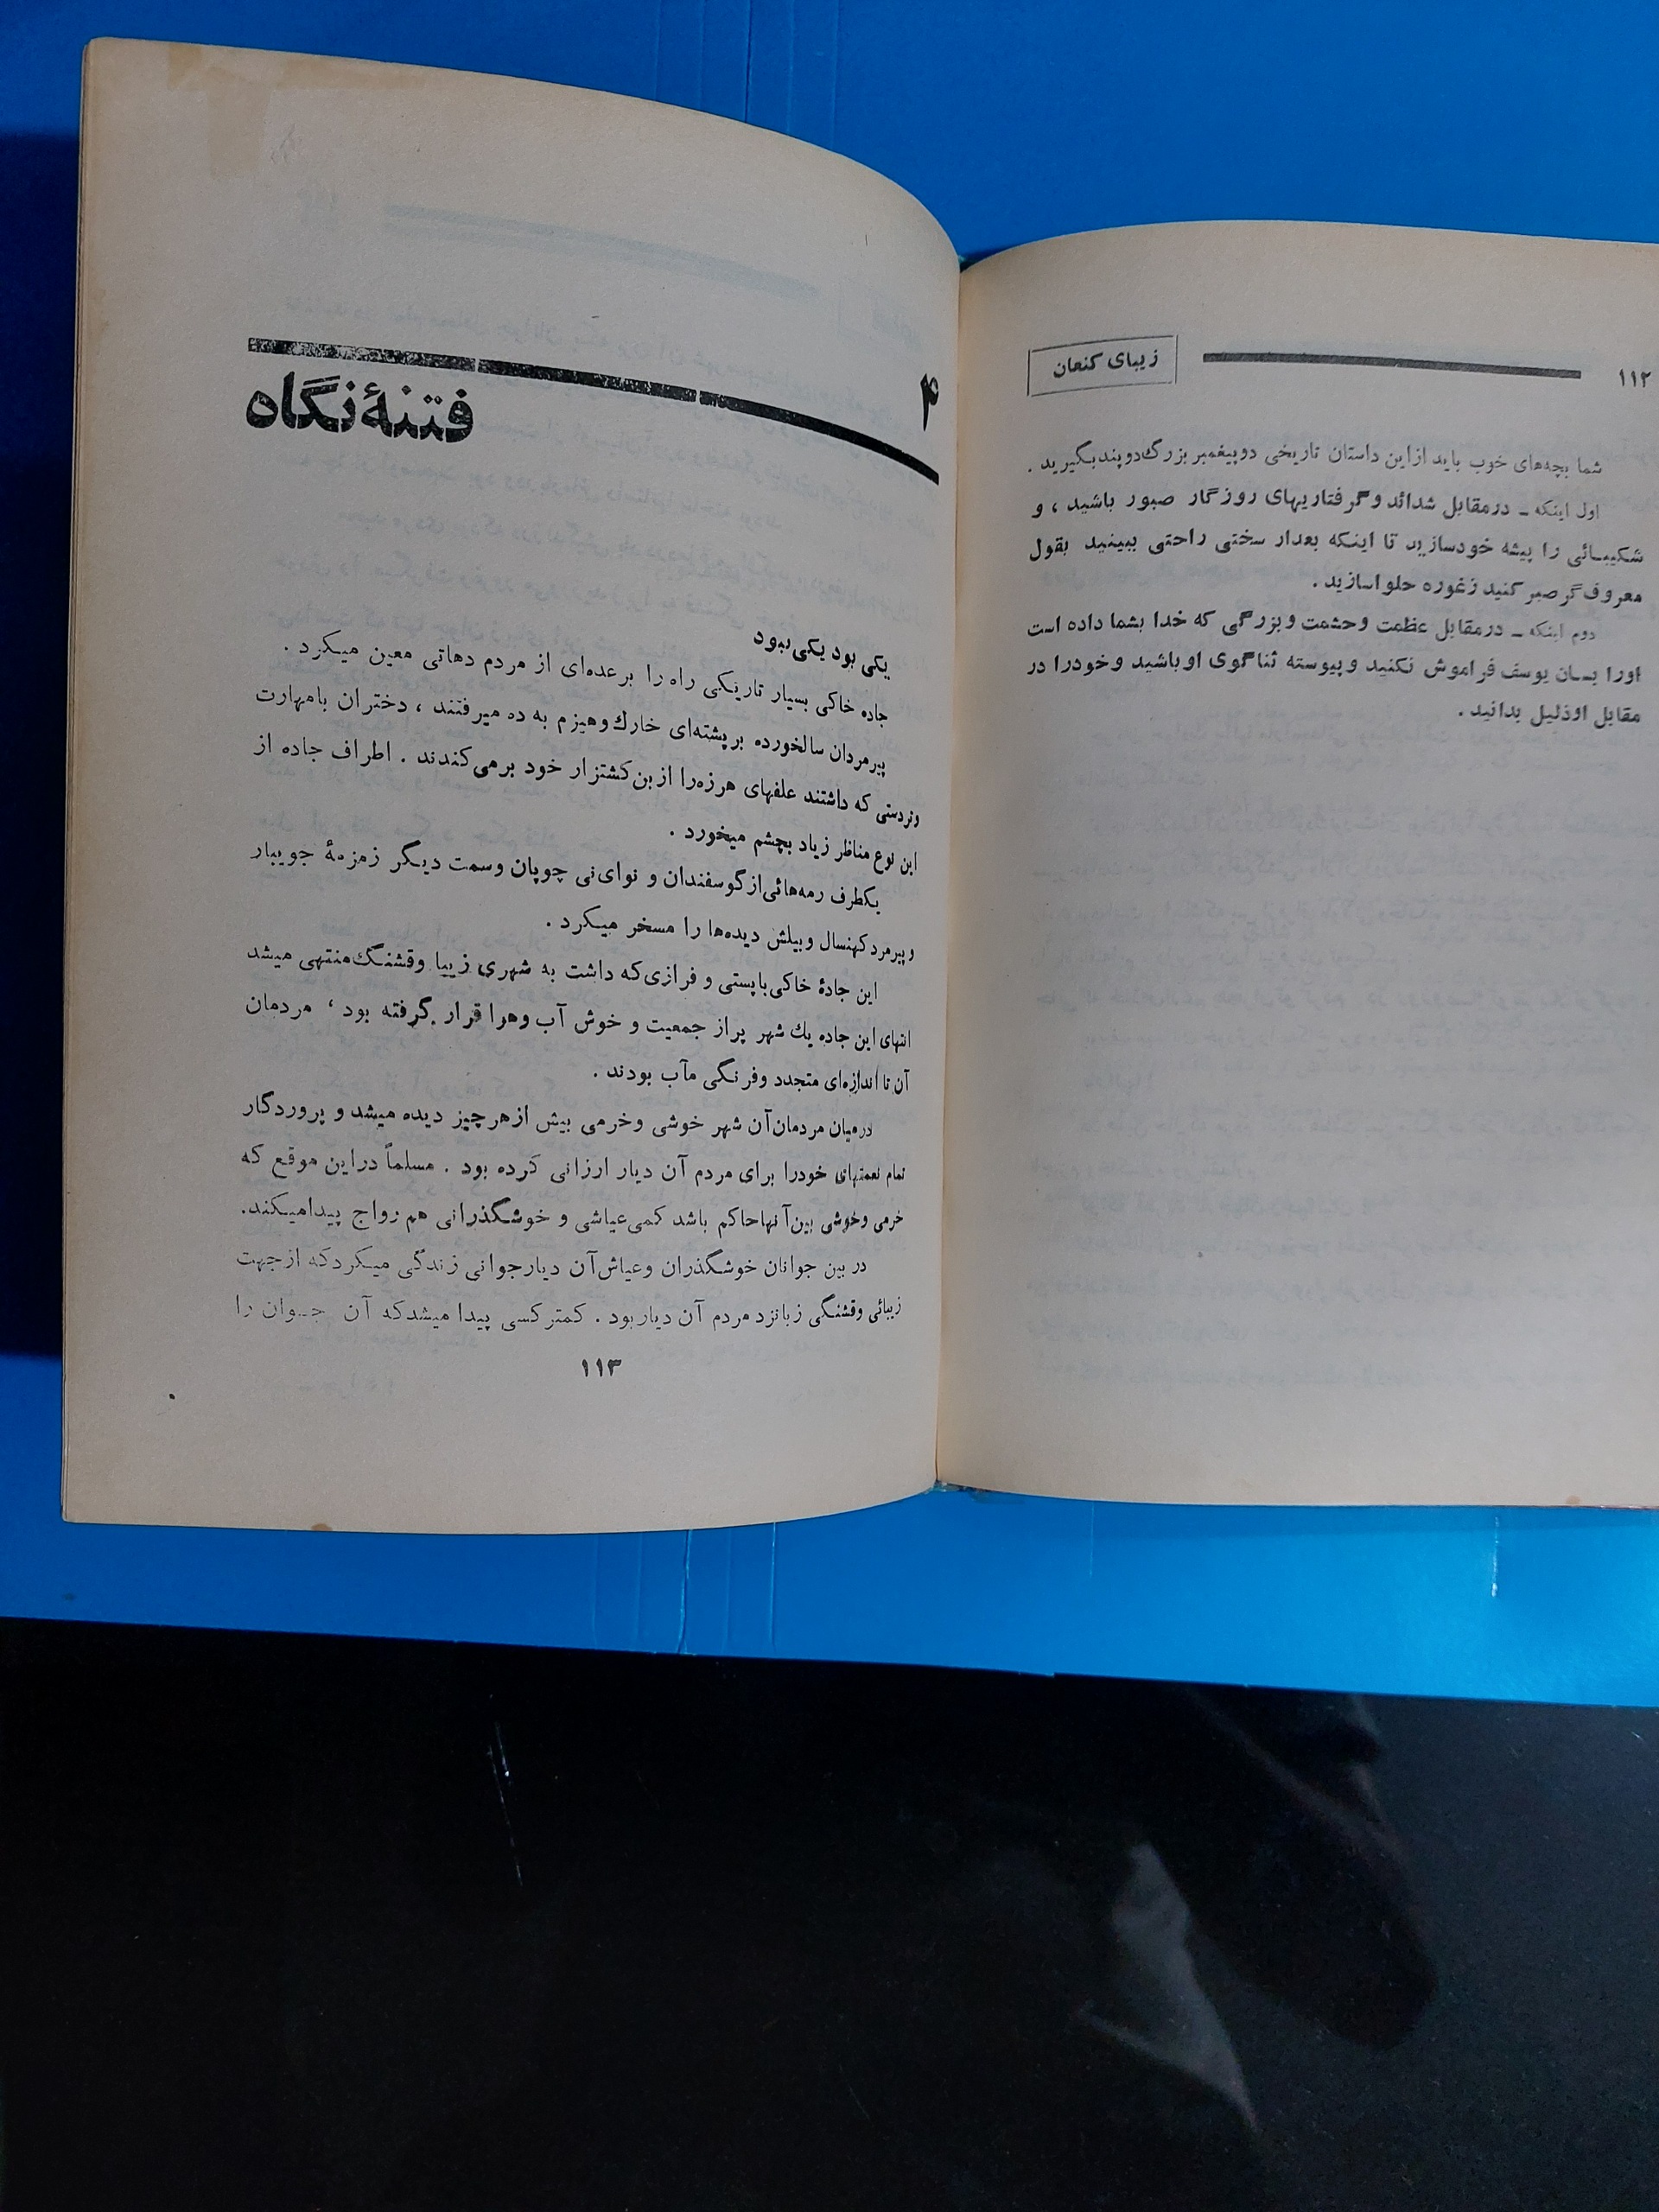 ۱۱۲
زیبای کنعان
شما بچه‌های خوب باید ازاین داستان تاریخی دوپیغمبر بزرگ‌دوپندبگیرید .
اول اینکه ـ درمقابل شدائد وگرفتاریهای روزگار صبور باشید ، و
شکیبـائی را پیشه خودسازید تا اینکه بعداز سختی راحتی ببینید بقول
معروف‌گرصبر کنید زغوره حلواسازید .
دوم اینکه ـ درمقابل عظمت وحشمت وبزرگی که خدا بشما داده است
اورا بسـان یوسف فراموش نکنید وپیوسته ثناگوی اوباشید وخودرا در
مقابل اوذلیل بدانید .
۴
فتنهٔ نگاه
یکی بود یکی نبود
جاده خاکی بسیار تاریکی راه را برعده‌ای از مردم دهاتی معین میکرد .
پیرمردان سالخورده برپشته‌ای خارك وهیزم به ده میرفتند ، دختران بامهارت
وتردستی که داشتند علفهای هرزه‌را ازبن‌کشتزار خود برمی‌کندند . اطراف جاده از
این نوع مناظر زیاد بچشم میخورد .
یکطرف رمه‌هائی‌ازگوسفندان و نوای‌نی چوپان وسمت دیگر زمزمهٔ جویبار
وپیرمردکهنسال وبیلش دیده‌ها را مسخر میکرد .
این جادهٔ خاکی‌باپستی و فرازی‌که داشت به شهری زیبا وقشنگ‌منتهی میشد
انتهای این جاده یك شهر پراز جمعیت و خوش آب وهوا قرار گرفته بود ، مردمان
آن تا اندازه‌ای متجدد وفرنگی مآب بودند .
درمیان مردمان‌آن شهر خوشی وخرمی بیش ازهرچیز دیده میشد و پروردگار
تمام نعمتهای خودرا برای مردم آن دیار ارزانی کرده بود . مسلماً دراین موقع که
خرمی وخوشی بین‌آنهاحاکم باشد کمی‌عیاشی و خوشگذرانی هم رواج پیدامیکند.
در بین جوانان خوشگذران وعیاش‌آن دیارجوانی زندگی میکردکه ازجهت
زیبائی وقشنگی زبانزد مردم آن دیاربود . کمترکسی پیدا میشدکه آن جـوان را
۱۱۳